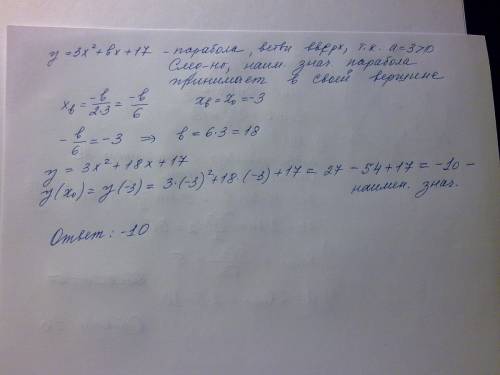 y = 3x² + bx + 17 - парабола, ветви вверх, т.к. a=3>0
След-но, наим. знач. парабола
принимает в своей вершине
x_b = -b/2·3 = -b/6    x_b = x₀ = -3
-b/6 = -3 ⇒ b = 6·3 = 18
y = 3x² + 18x + 17
y(x₀) = y(-3) = 3·(-3)² + 18·(-3) + 17 = 27 - 54 + 17 = -10 -
наимен. знач.
Ответ: -10